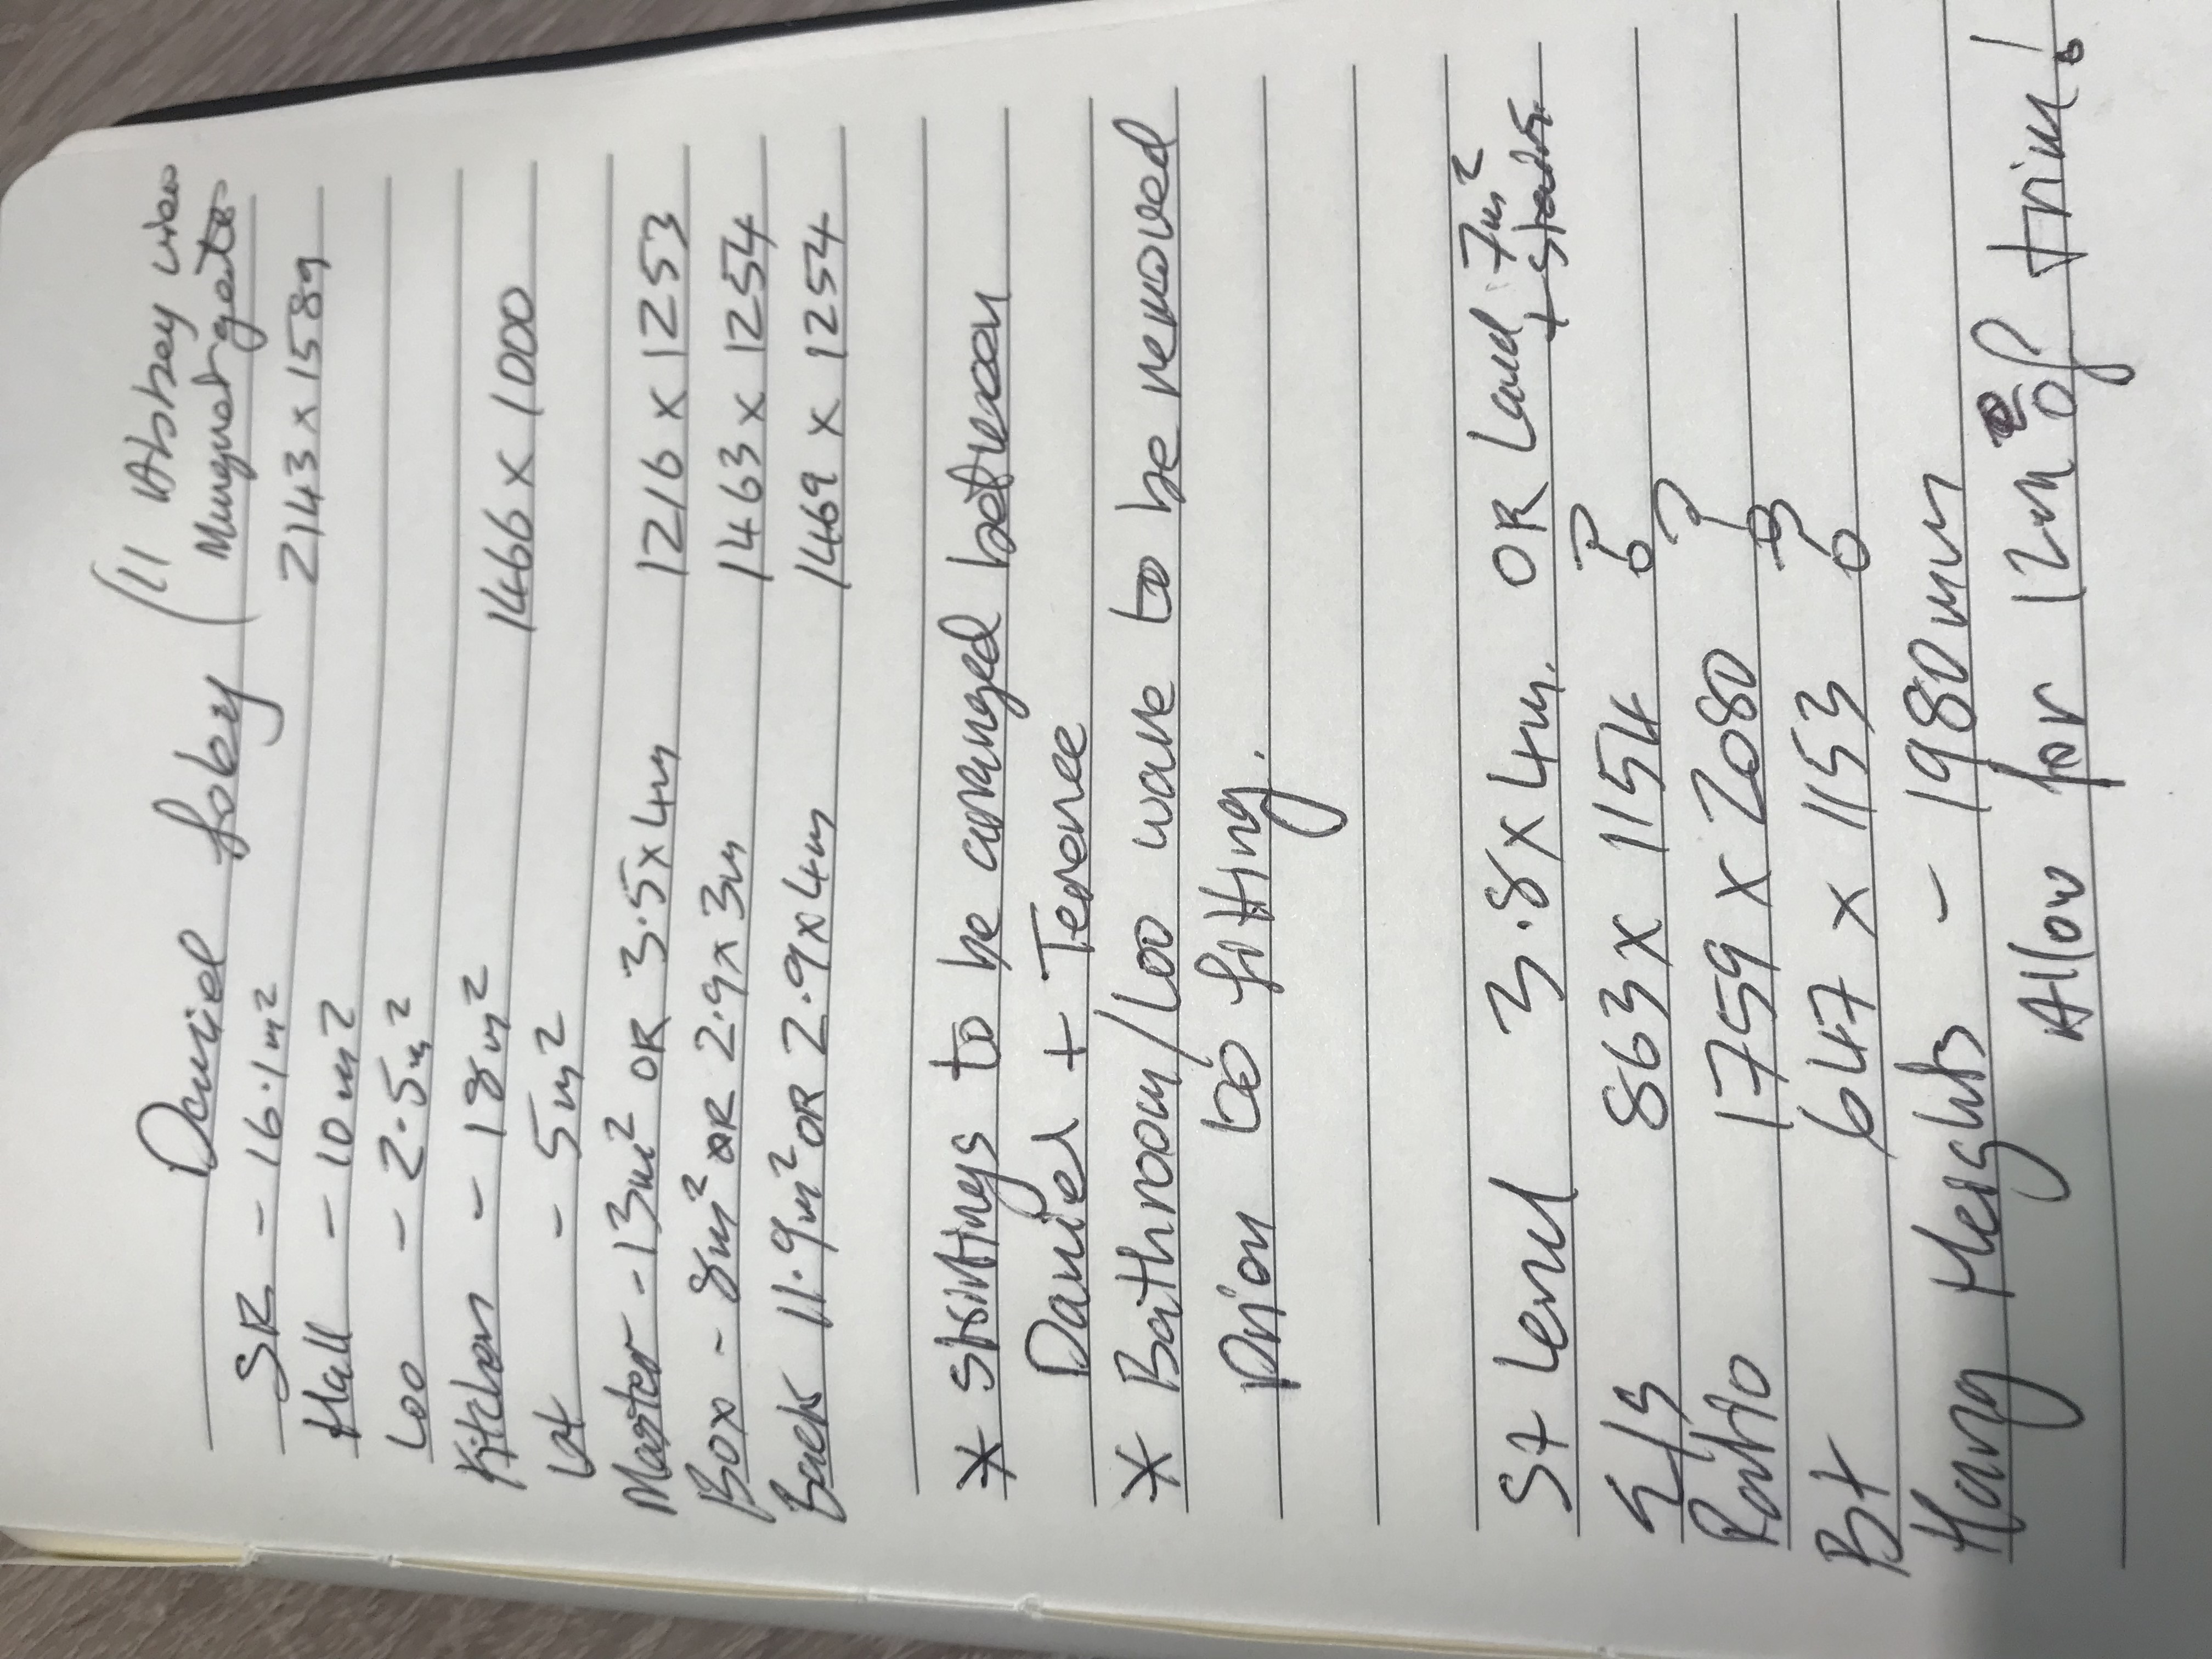 Daniel Fobey (11 Abbey view
Mungret gate
SR - 16.1m² 2143 x 1589
Hall - 10m2
Loo - 2.5m²
Kitchen - 18m² 1466 x 1000
Lot - 5m2
Master - 13m² OR 3.5x4m 1216 x 1253
Box - 8m² OR 2.9x3m 1463 x 1254
Back 11.9m² OR 2.9x4m 1469 x 1254
* to be arranged between
Daniel + Terence
* Bathroom/Loo to be removed
prior to fitting.
St Lend 3.8x4m. OR Land 7m²
+ stairs.
863 x 1154 ?
Patio 1759 x 2080 ?
Bt 647 x 1153 ?
Hang Heights - 1980mm
Allow for 12m of trim!